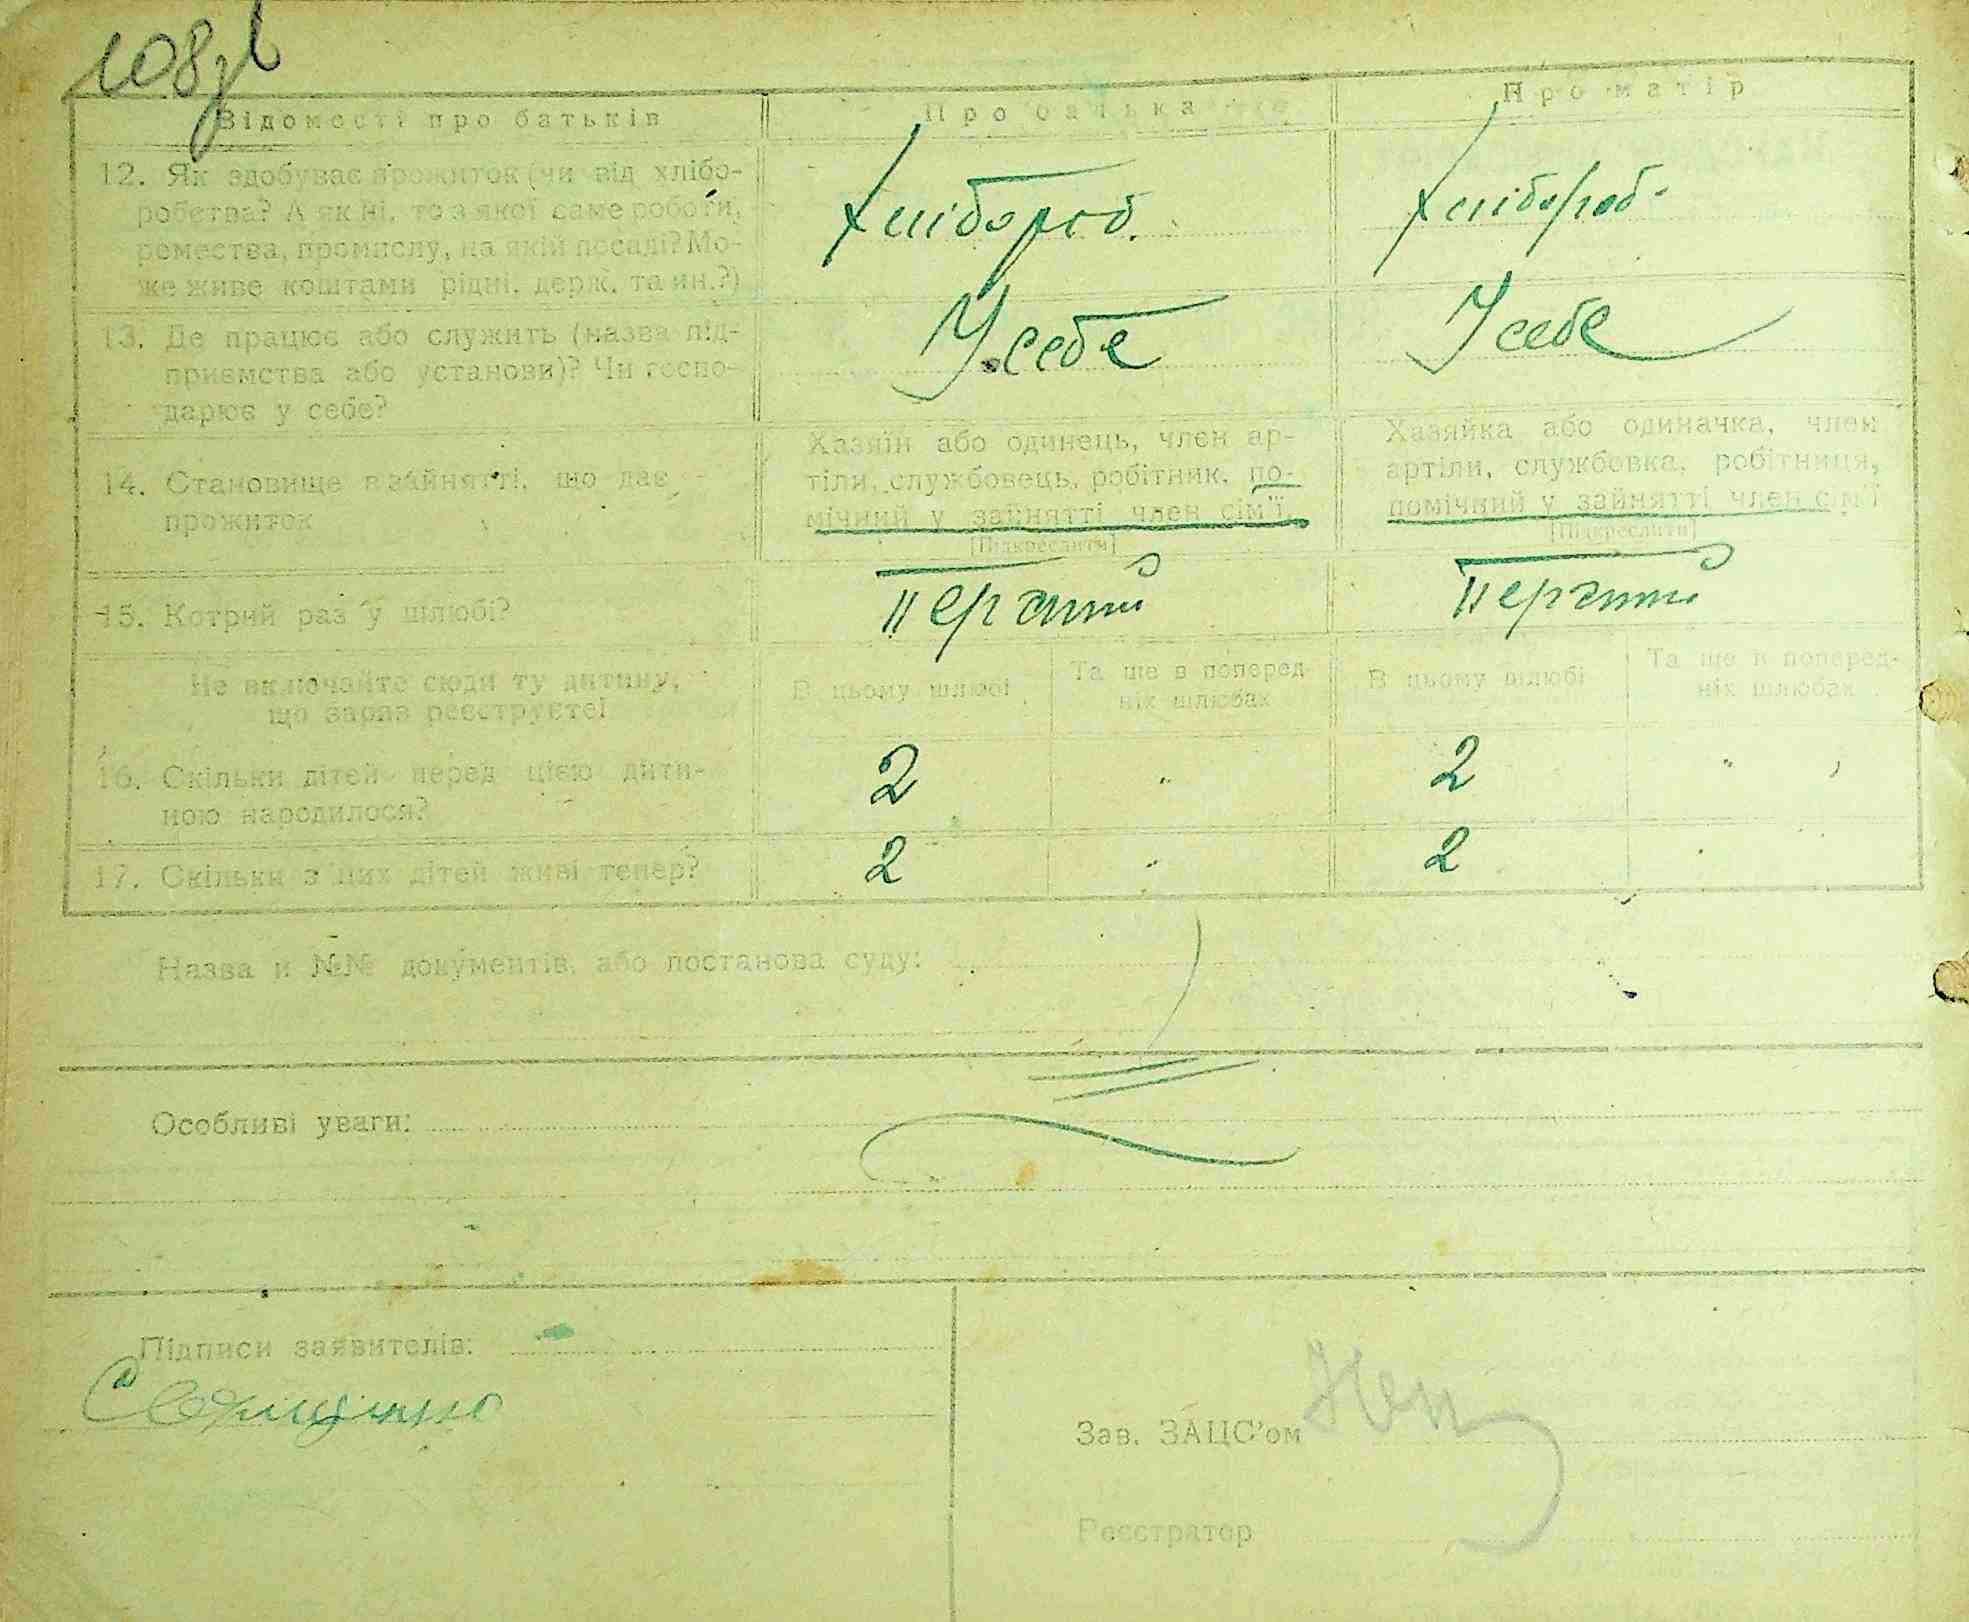 108
Відомості про батьків
Про батька
Про матір
12. Як здобуває прожиток (чи від хлібо-
робства? А як ні, то з якої саме роботи,
ремества, промислу, на якій посаді? Мо-
же живе коштами рідні, держ. та ин.?)
Хлібороб.
Хлібороб.
13. Де працює або служить (назва під-
приємства або установи)? Чи госпо-
дарює у себе?
У себе
У себе
14. Становище в зайнятті, що дає
прожиток
Хазяїн або одинець, член ар-
тіли, службовець, робітник, по-
мічний у зайнятті член сім'ї.
[Підкреслити]
Хазяйка або одиначка, член
артіли, службовка, робітниця,
помічний у зайнятті член сім'ї
[Підкреслити]
15. Котрий раз у шлюбі?
Перший
Перший
Не включайте сюди ту дитину,
що зараз реєструєте!
В цьому шлюбі
Та ще в поперед-
ніх шлюбах
В цьому шлюбі
Та ще в поперед-
ніх шлюбах
16. Скільки дітей перед цією дити-
ною народилося?
2
"
2
"
17. Скільки з цих дітей живі тепер?
2
"
2
Назва й №№ документів, або постанова суду:
Особливі уваги:
Підписи заявителів:
Зав. ЗАЦС'ом
Реєстратор